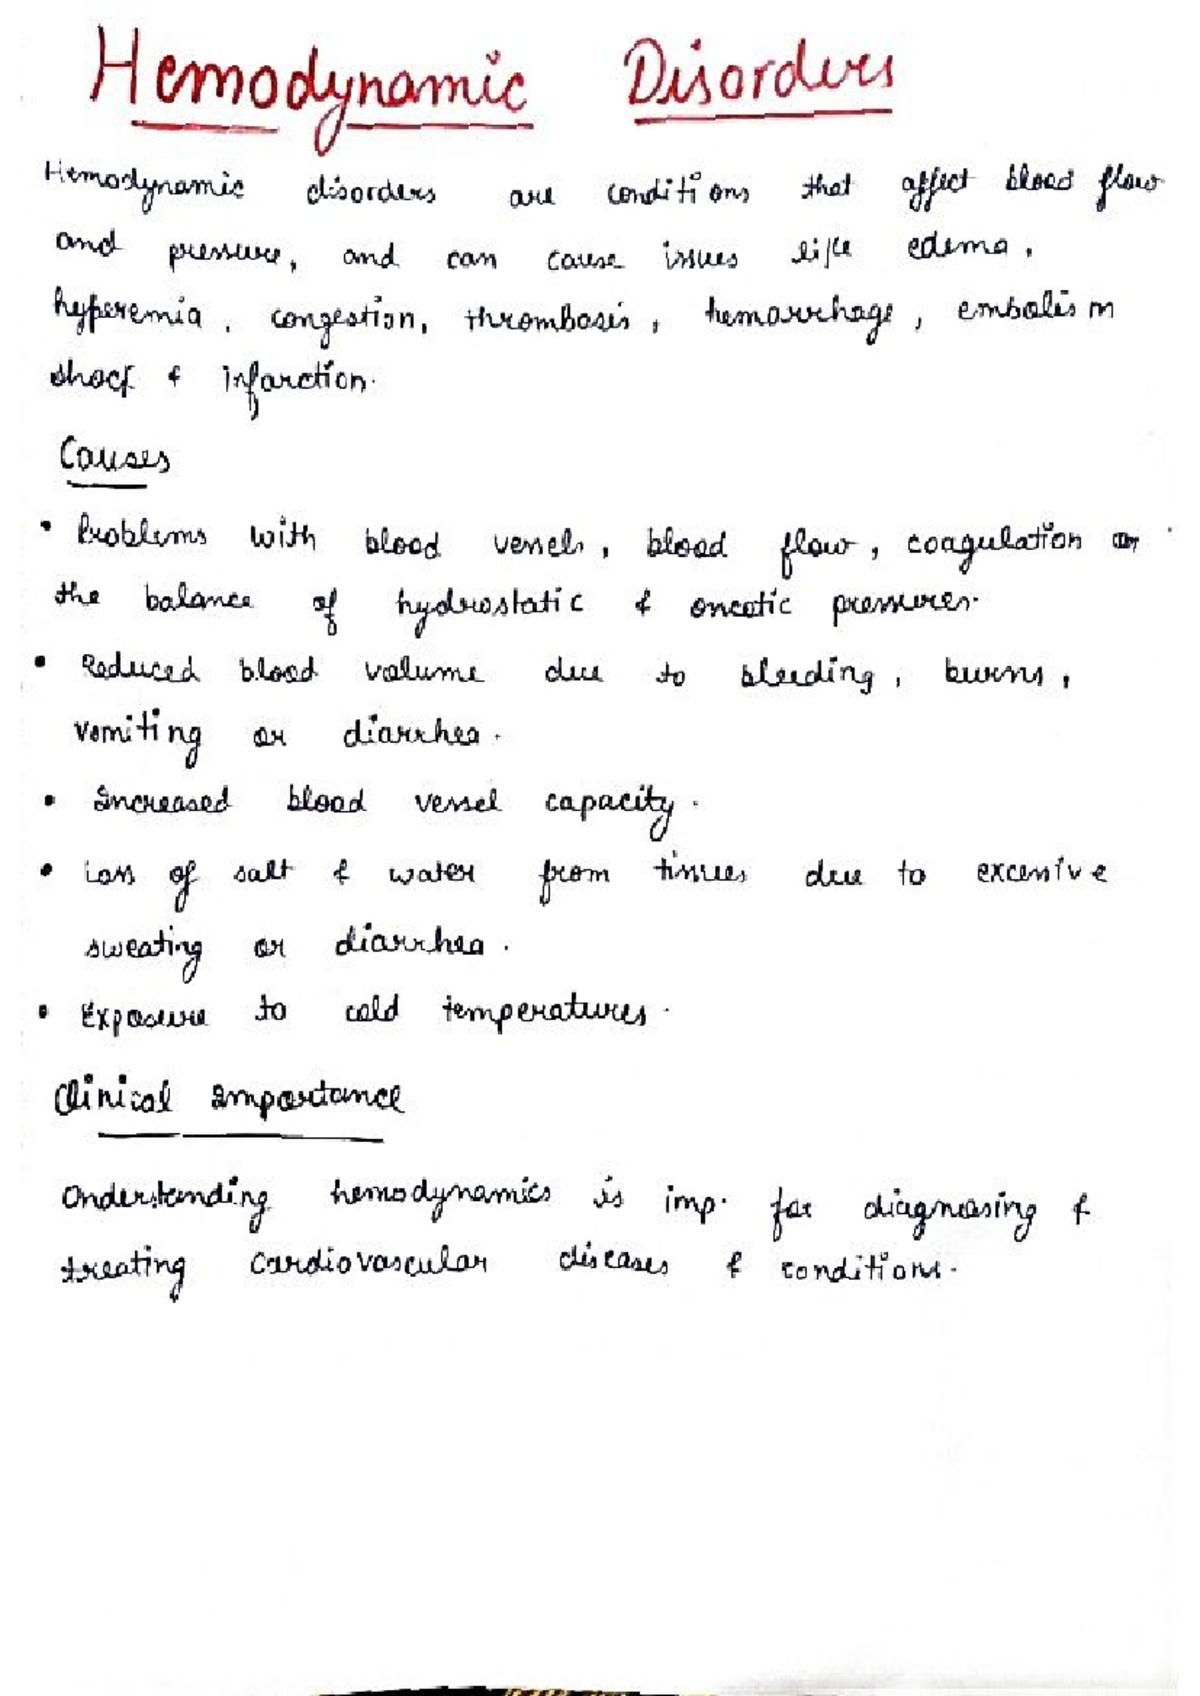 Hemodynamic Disorders
Hemodynamic disorders are conditions that affect blood flow
and pressure, and can cause issues like edema,
hyperemia, congestion, thrombosis, hemorrhage, embolism
shock & infarction.
Causes
• Problems with blood vessels, blood flow, coagulation or
the balance of hydrostatic & oncotic pressures.
• Reduced blood volume due to bleeding, burns,
vomiting or diarrhea.
• Increased blood vessel capacity.
• Loss of salt & water from tissues due to excessive
sweating or diarrhea.
• Exposure to cold temperatures.
Clinical Importance
Understanding hemodynamics is imp. for diagnosing &
treating cardiovascular diseases & conditions.